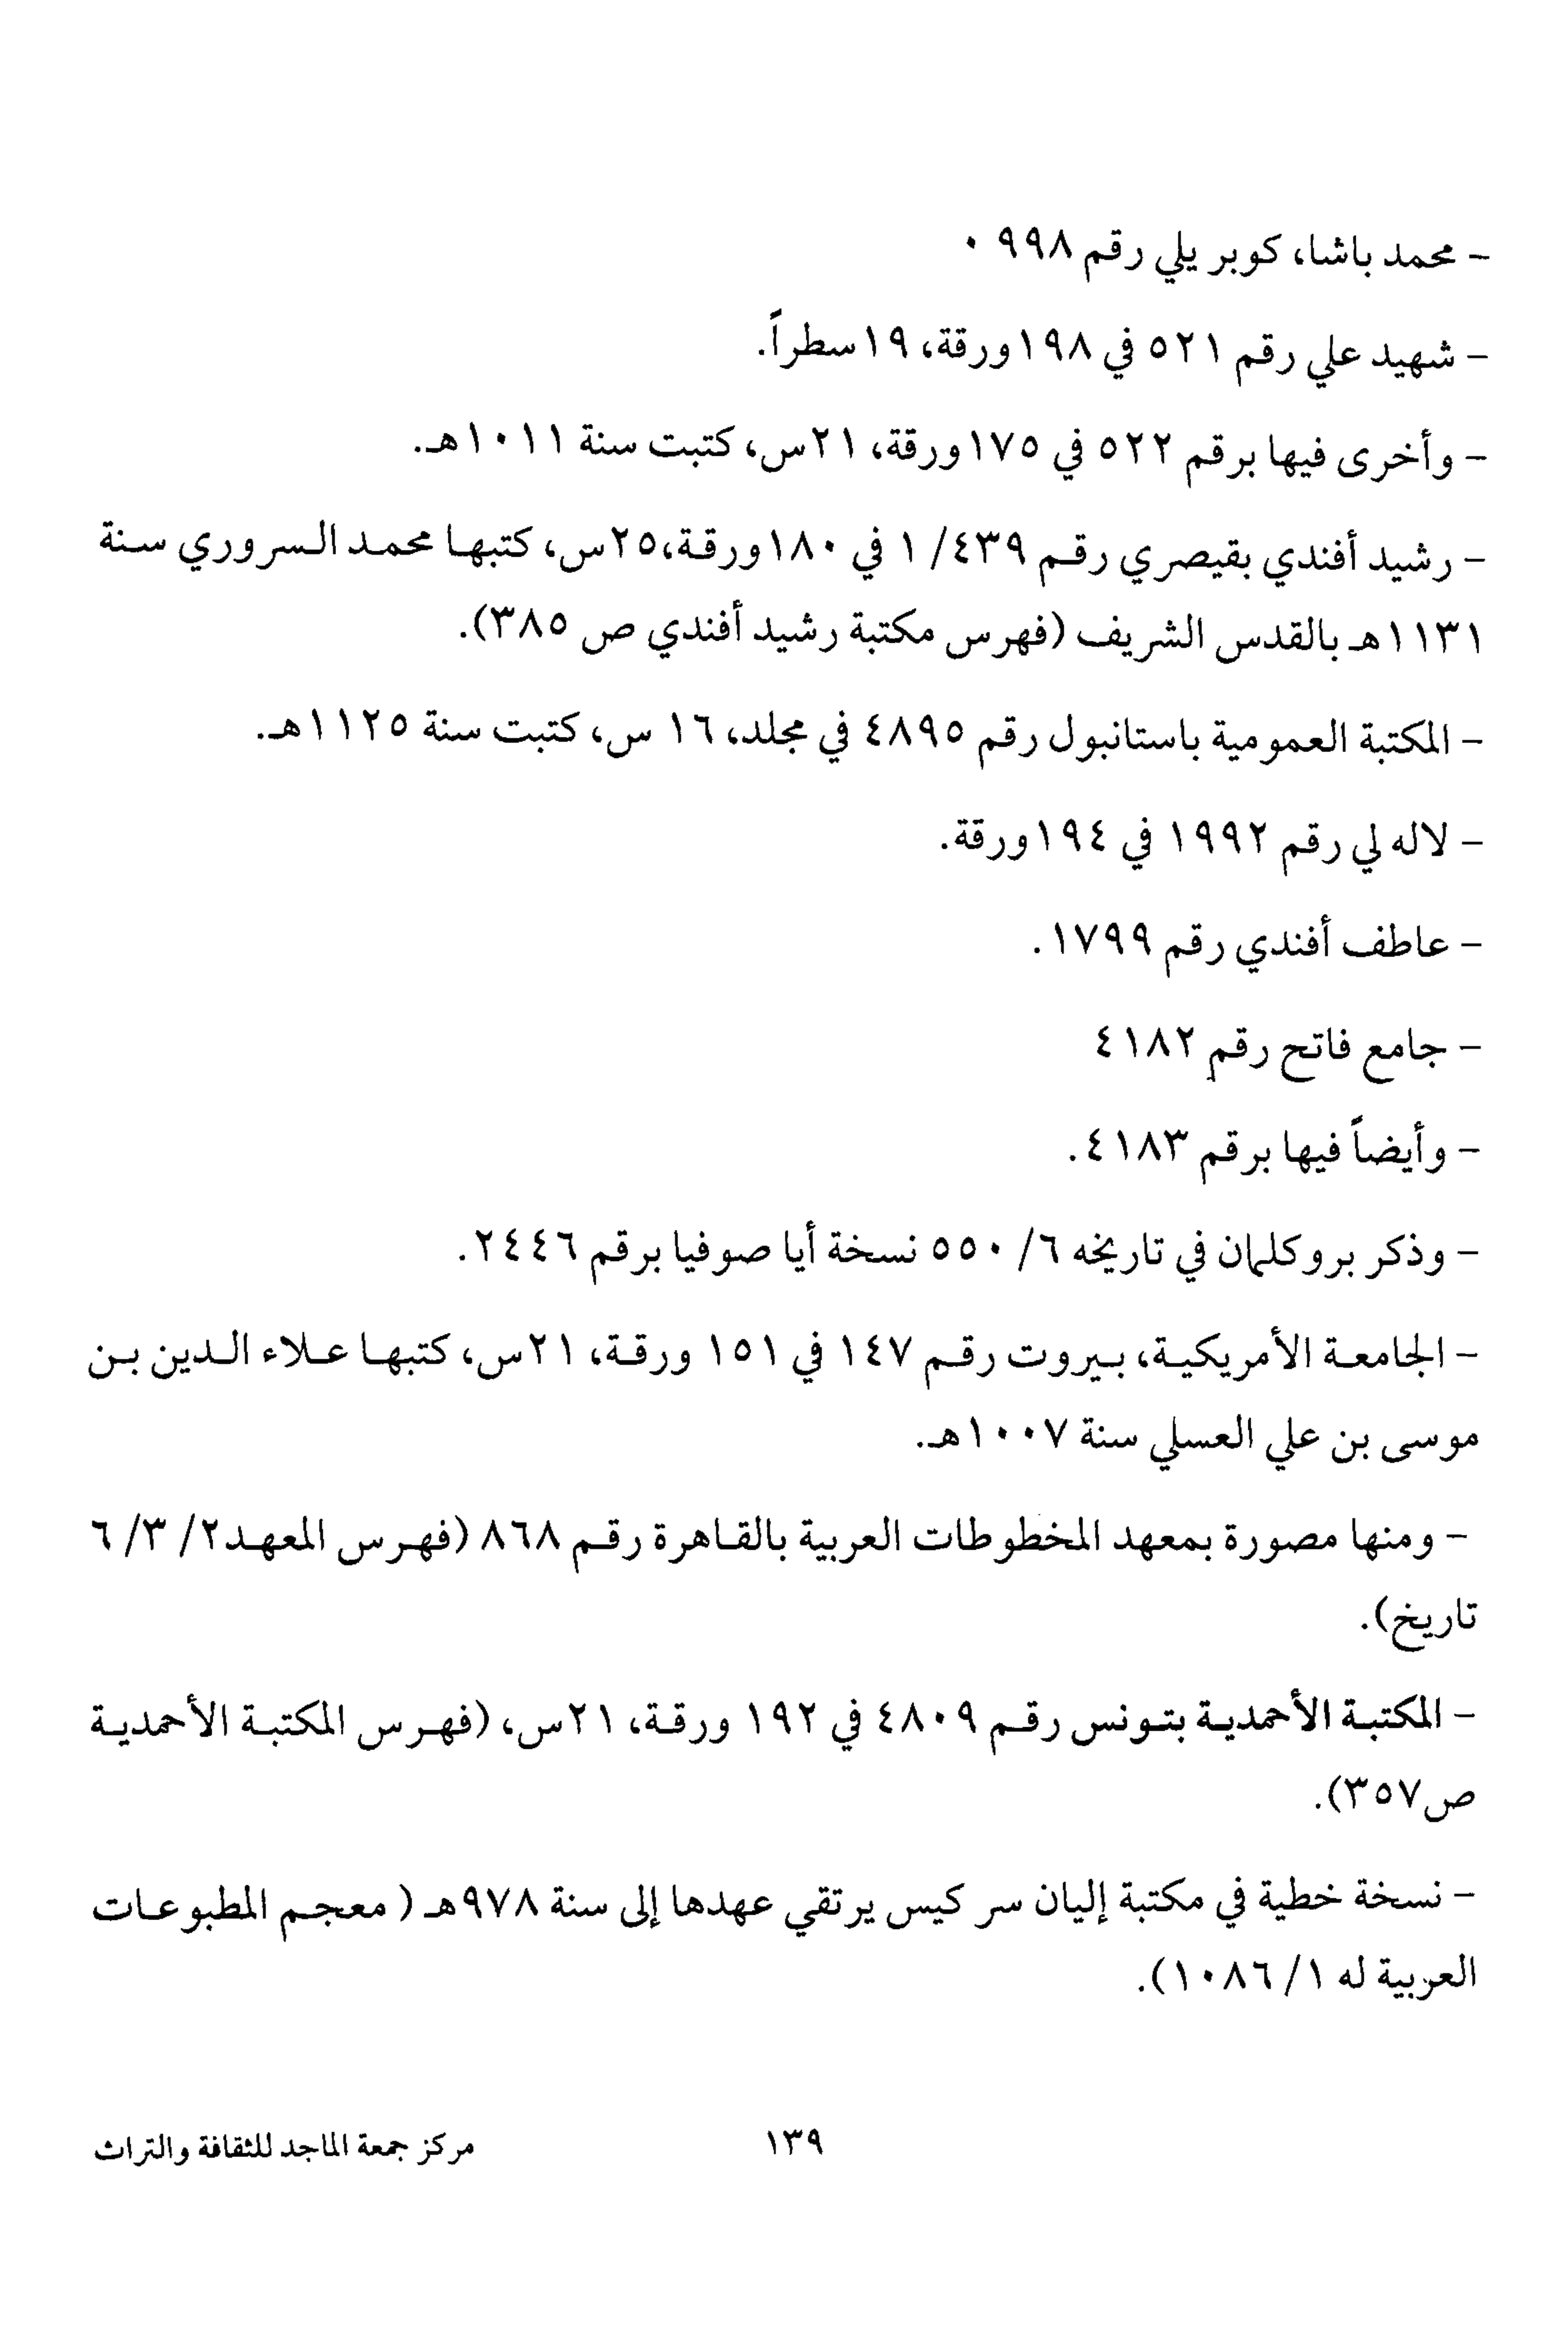 - محمد باشا، كوبريلي رقم ٩٩٨ ٠
- شهيد علي رقم ٥٢١ في ١٩٨ورقة، ١٩سطراً.
- وأخرى فيها برقم ٥٢٢ في ١٧٥ورقة، ٢١س، كتبت سنة ١٠١١هـ.
- رشيد أفندي بقيصري رقم ٤٣٩/ ١ في ١٨٠ورقة،٢٥س، كتبها محمد السروري سنة
١١٣١هـ بالقدس الشريف (فهرس مكتبة رشيد أفندي ص ٣٨٥).
- المكتبة العمومية باستانبول رقم ٤٨٩٥ في مجلد، ١٦ س، كتبت سنة ١١٢٥هـ.
- لاله لي رقم ١٩٩٢ في ١٩٤ورقة.
- عاطف أفندي رقم ١٧٩٩.
- جامع فاتح رقم ٤١٨٢
- وأيضاً فيها برقم ٤١٨٣.
- وذكر بروكلمان في تاريخه ٦/ ٥٥٠ نسخة أيا صوفيا برقم ٢٤٤٦.
- الجامعة الأمريكية، بيروت رقم ١٤٧ في ١٥١ ورقة، ٢١س، كتبها علاء الدين بن
موسى بن علي العسلي سنة ١٠٠٧هـ.
- ومنها مصورة بمعهد المخطوطات العربية بالقاهرة رقم ٨٦٨ (فهرس المعهد٢/ ٣/ ٦
تاريخ).
- المكتبة الأحمدية بتونس رقم ٤٨٠٩ في ١٩٢ ورقة، ٢١س، (فهرس المكتبة الأحمدية
ص٣٥٧).
- نسخة خطية في مكتبة إليان سركيس يرتقي عهدها إلى سنة ٩٧٨هـ ( معجم المطبوعات
العربية له ١/ ١٠٨٦).
١٣٩
مركز جمعة الماجد للثقافة والتراث